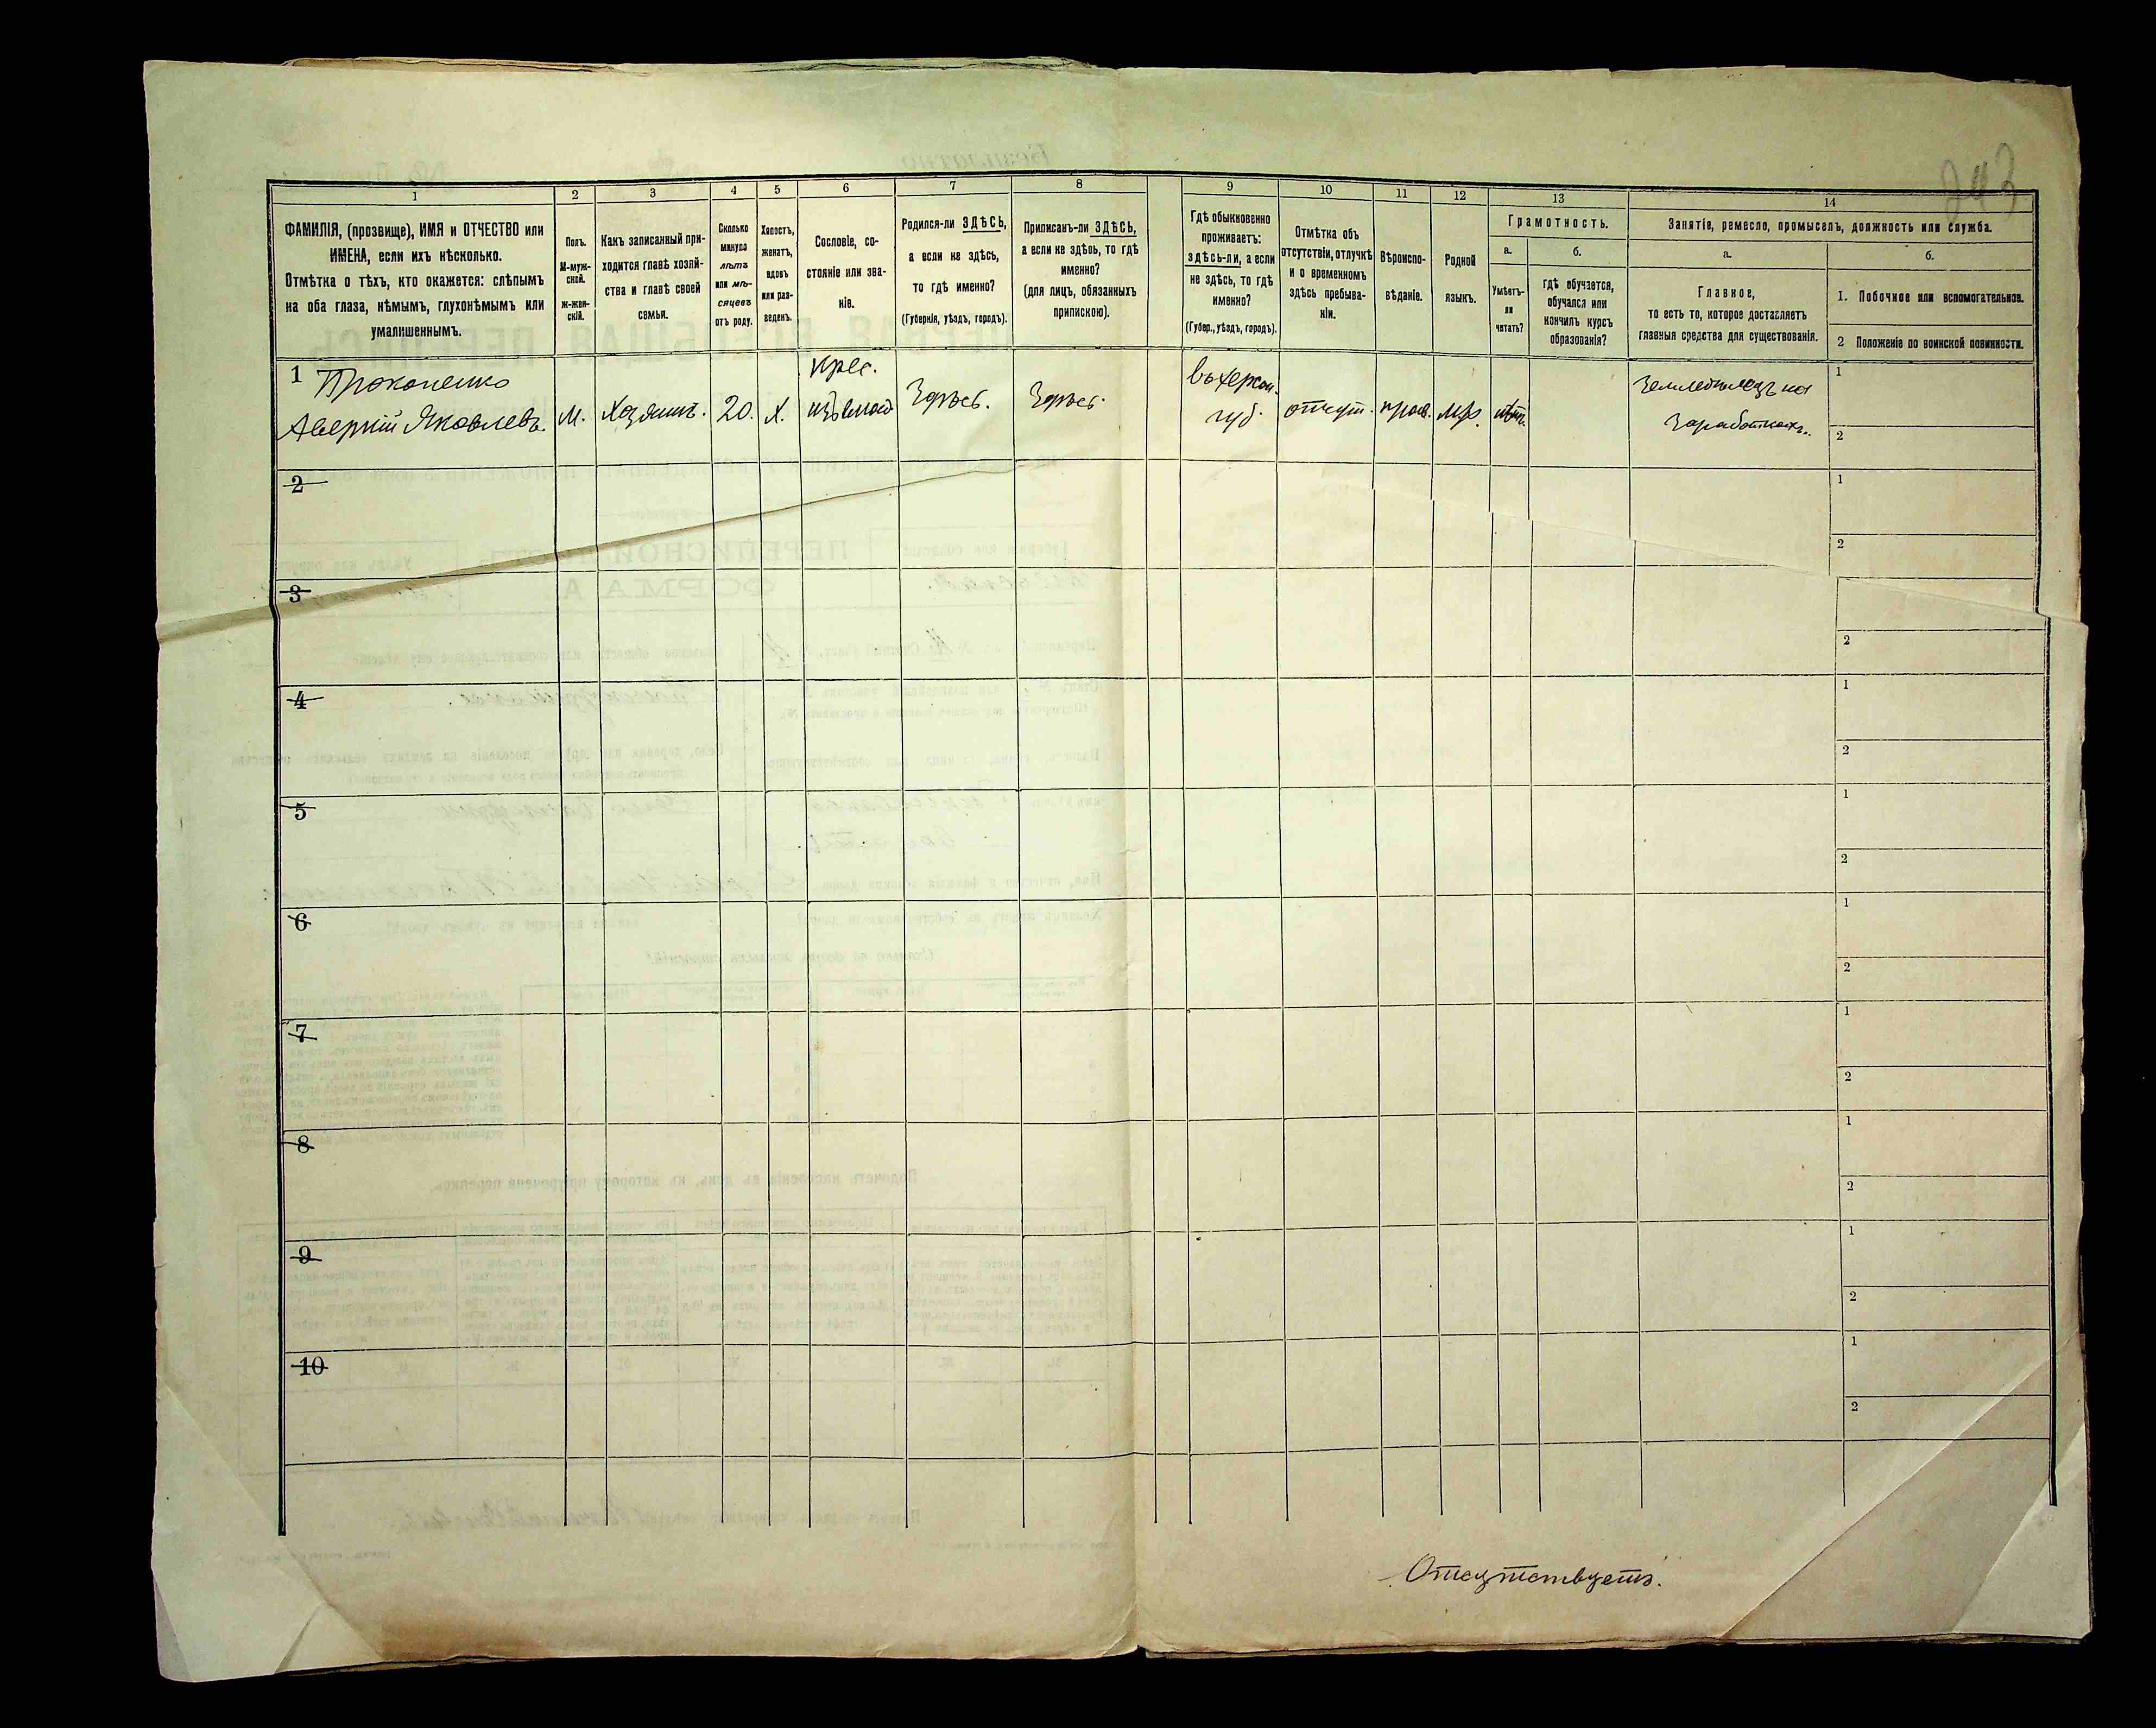 243
1
2
3
4
5
6
7
8
9
10
11
12
13
14
ФАМИЛІЯ, (прозвище), ИМЯ и ОТЧЕСТВО или
ИМЕНА, если ихъ нѣсколько.
Отмѣтка о тѣхъ, кто окажется: слѣпымъ
на оба глаза, нѣмымъ, глухонѣмымъ или
умалишеннымъ.
Полъ.
М-муж-
ской.
ж-жен-
скій.
Какъ записанный при-
ходится главѣ хозяй-
ства и главѣ своей
семьи.
Сколько
минуло
лѣтъ
или мѣ-
сяцевъ
отъ роду.
Холостъ,
женатъ,
вдовъ
или раз-
веденъ.
Сословіе, со-
стояніе или зва-
ніе.
Родился-ли ЗДѢСЬ,
а если не здѣсь,
то гдѣ именно?
(Губернія, уѣздъ, городъ).
Приписанъ-ли ЗДѢСЬ,
а если не здѣсь, то гдѣ
именно?
(для лицъ, обязанныхъ
припискою).
Гдѣ обыкновенно
проживаетъ:
здѣсь-ли, а если
не здѣсь, то гдѣ
именно?
(Губер., уѣздъ, городъ).
Отмѣтка объ
отсутствіи, отлучкѣ
и о временномъ
здѣсь пребыва-
ніи.
Вѣроиспо-
вѣданіе.
Родной
языкъ.
Грамотность.
а.
Умѣетъ-
ли
читать?
б.
гдѣ обучается,
обучался или
кончилъ курсъ
образованія?
Занятіе, ремесло, промыселъ, должность или служба.
а.
Главное,
то есть то, которое доставляетъ
главныя средства для существованія.
б.
1. Побочное или вспомогательное.
2 Положеніе по воинской повинности.
1 Прокопенко
Аверкій Яковлевъ.
М.
Хозяинъ.
20.
Х.
крес.
изъ
Здѣсь.
Здѣсь.
въ Херсон.
губ.
отсут.
прав.
мр.
нѣтъ.
Земледѣлецъ на
Заработкахъ.
1
2
2
1
2
3
2
4
1
2
5
1
2
6
1
2
7
1
2
8
1
2
9
1
2
10
1
2
Отсутствуетъ.